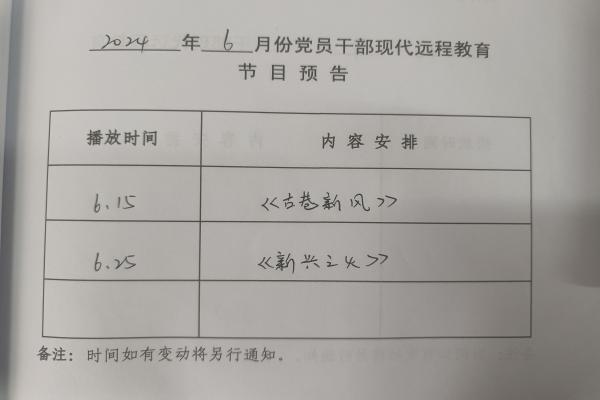 2024年6月份党员干部现代远程教育
节目预告
播放时间 内容安排
6.15 《古巷新风》
6.25 《新兴之火》
备注：时间如有变动将另行通知。